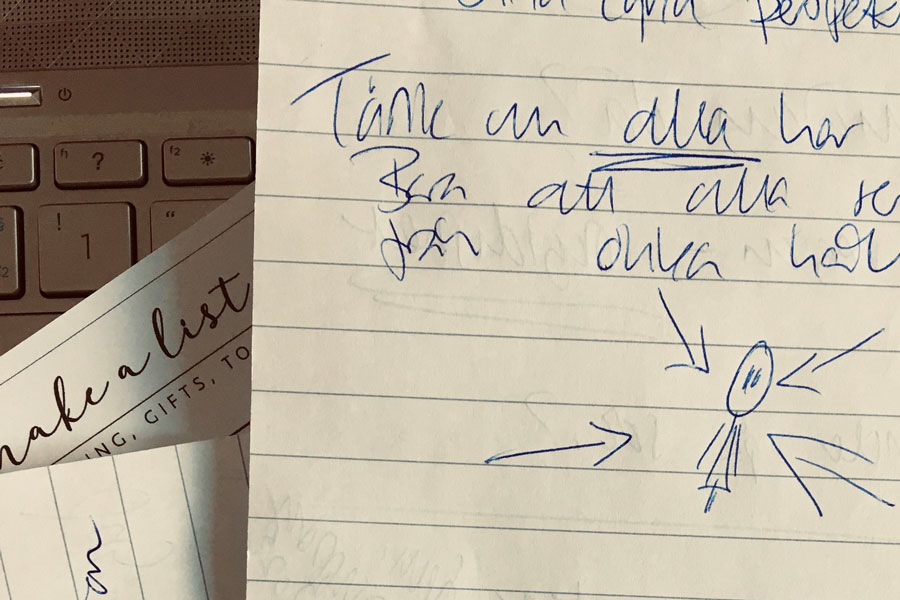 egna perspek
Tänk om alla har
Bara att alla se
från olika håll
f1 ? f2
! 1 "
make a list
ING, GIFTS, TO
on